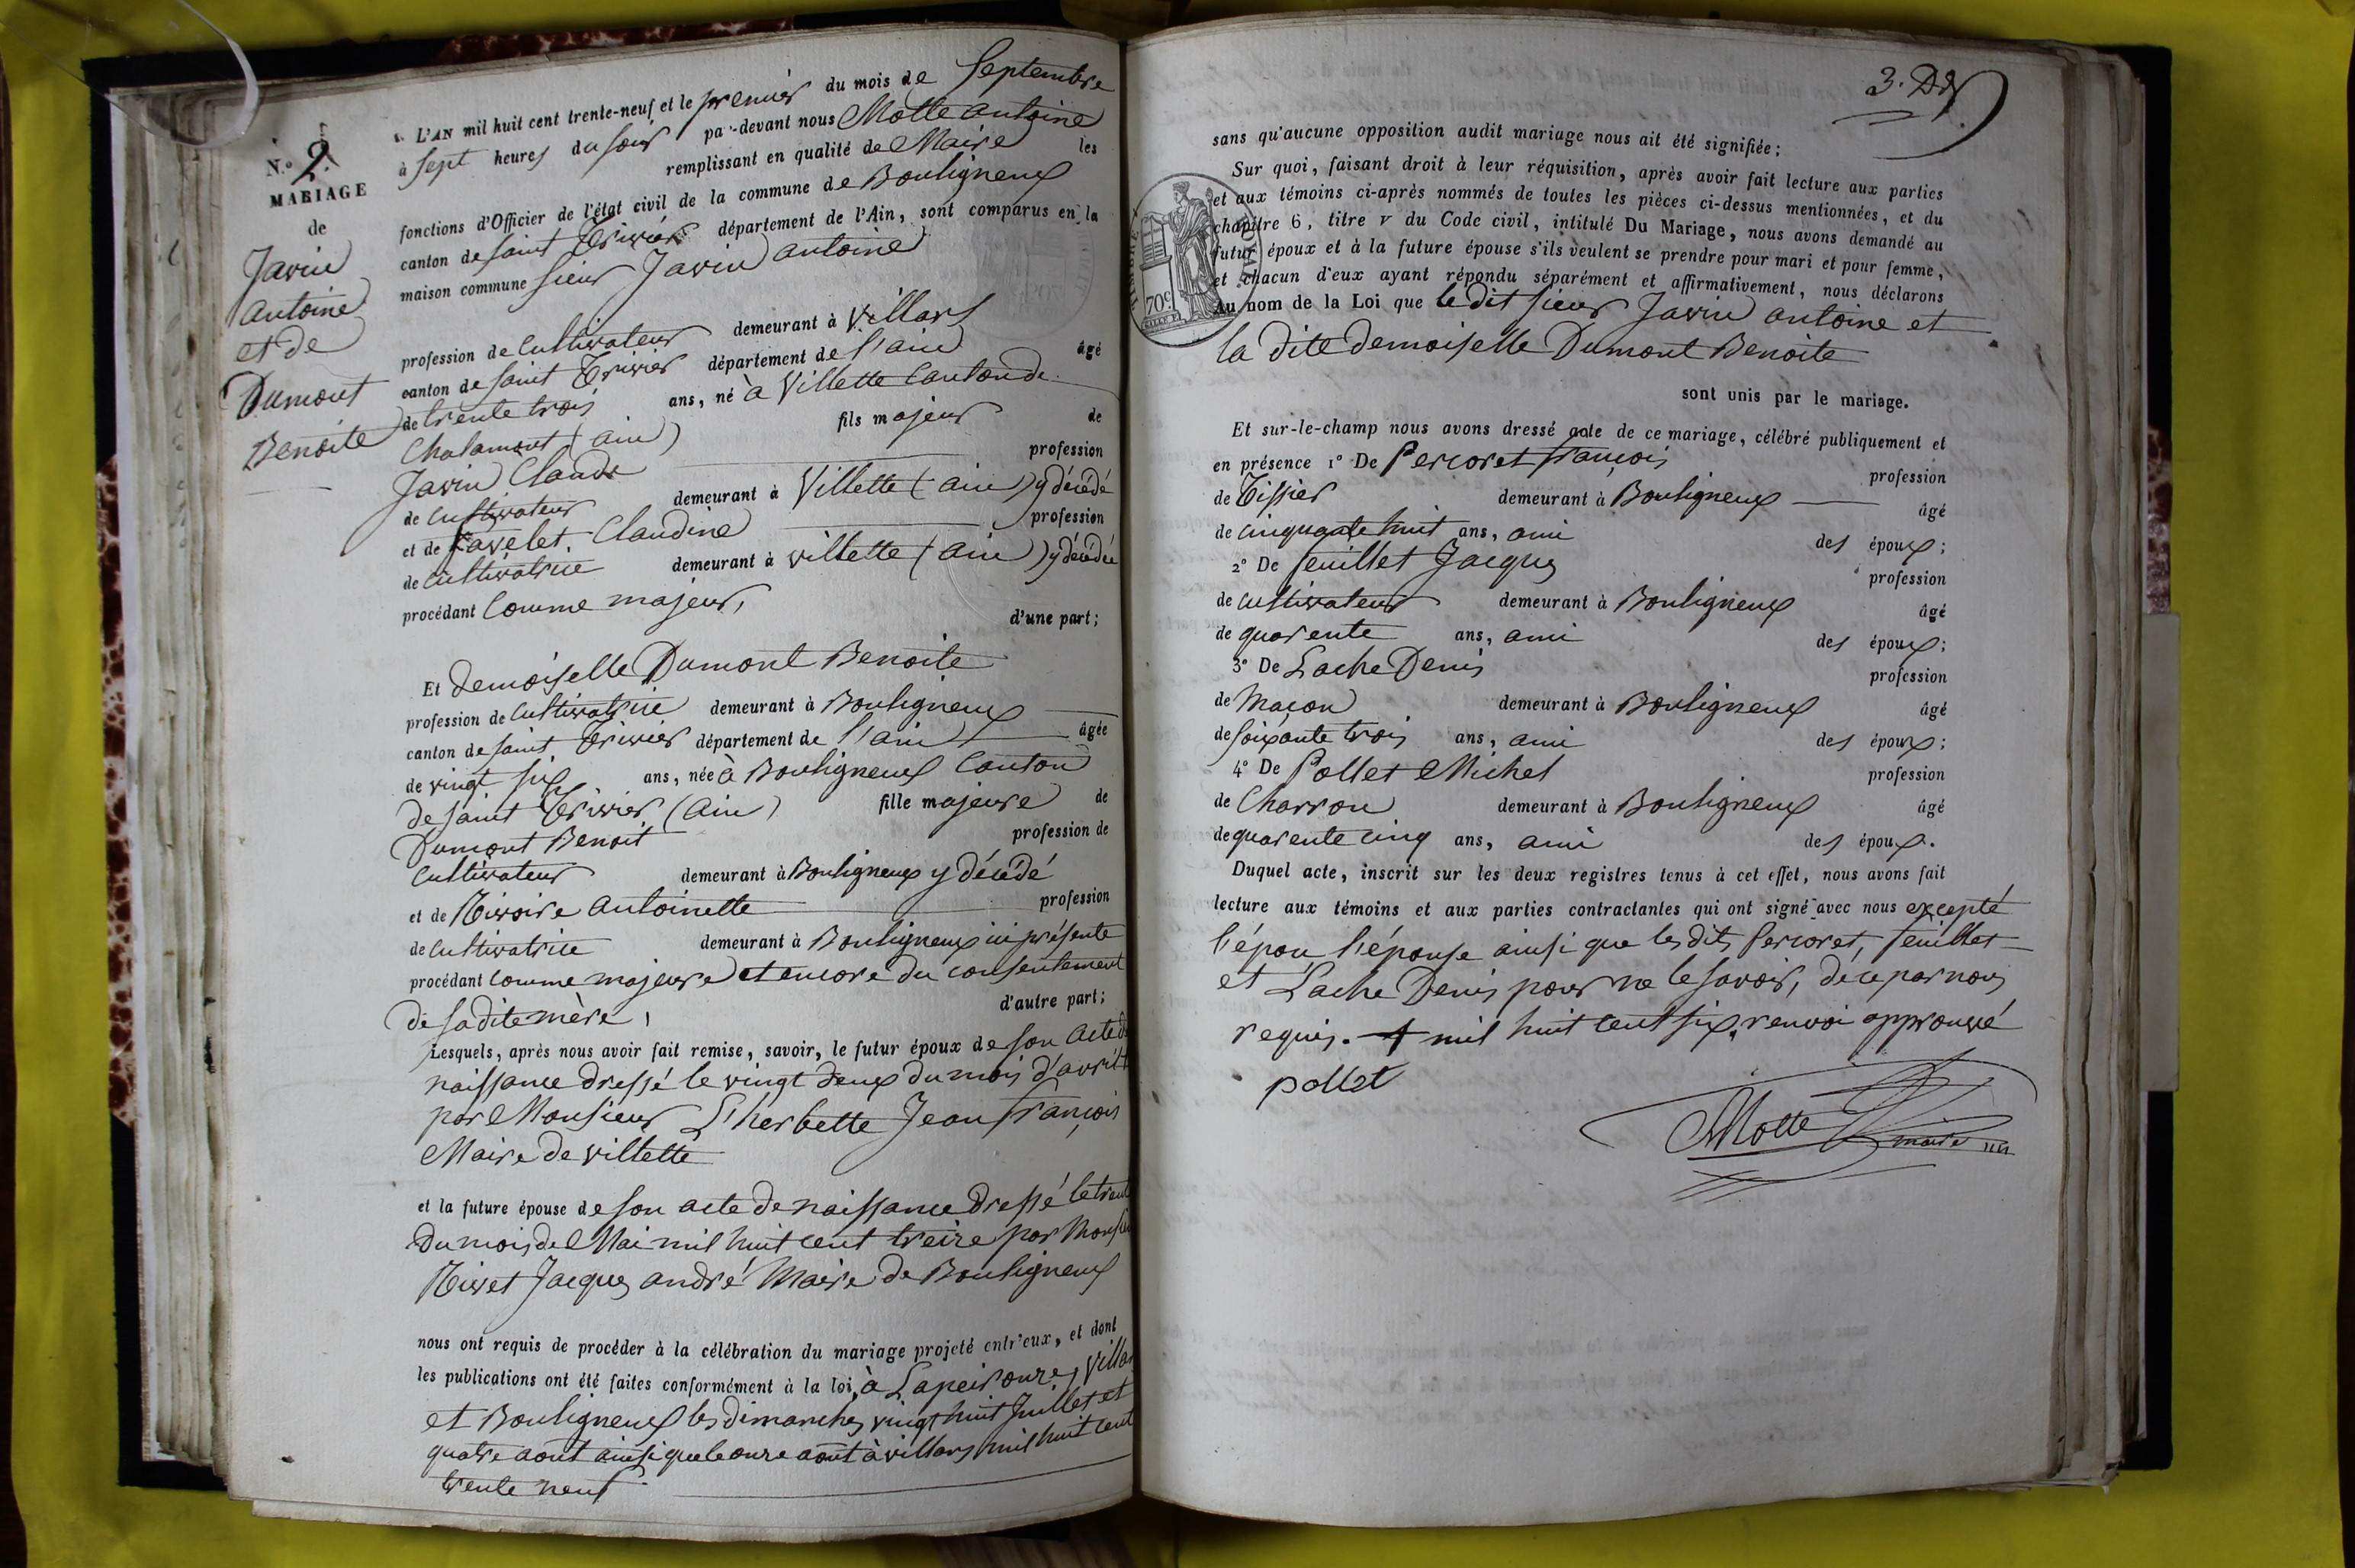 N.º 2.
MARIAGE
de
Javin
antoine
et de
Dumont
Benoite
L'AN mil huit cent trente-neuf et le premier du mois de Septembre
à sept heures du soir par-devant nous Motte antoine
remplissant en qualité de Maire les
fonctions d'Officier de l'état civil de la commune de Bouligneux
canton de saint Trivier département de l'Ain, sont comparus en la
maison commune sieur Javin antoine
profession de cultivateur demeurant à Villars
canton de saint Trivier département de l'ain âgé
de trente trois ans, né à Villette Canton de
Chalamont (ain) fils majeur de
Javin Claude profession
de cultivateur demeurant à Villette (ain) y décédé
et de Favelet Claudine profession
de cultivatrice demeurant à villette (ain) y décédée
procédant comme majeur, d'une part;
Et demoiselle Dumont Benoite
profession de cultivatrice demeurant à Bouligneux
canton de saint Trivier département de l'ain âgée
de vingt six ans, née à Bouligneux Canton
de saint Trivier (ain) fille majeure de
Dumont Benoit profession de
cultivateur demeurant à Bouligneux y décédé
et de Nivoire antoinette profession
de cultivatrice demeurant à Bouligneux ici présente
procédant comme majeure et encore du consentement
de sa dite mère, d'autre part;
Lesquels, après nous avoir fait remise, savoir, le futur époux de son acte de
naissance dressé le vingt deux du mois d'avril +
par Monsieur L'herbette Jean françois
Maire de villette
et la future épouse de son acte de naissance dressé le
du mois de Mai mil huit cent treize par
Nivet Jacques andré Maire de Bouligneux
nous ont requis de procéder à la célébration du mariage projeté entr'eux, et dont
les publications ont été faites conformément à la loi, à Lapeirouze, Villars
et Bouligneux les dimanches vingt huit Juillet et
quatre aout ainsi que le onze aout à villars mil huit cent
trente neuf
3.
sans qu'aucune opposition audit mariage nous ait été signifiée;
Sur quoi, faisant droit à leur réquisition, après avoir fait lecture aux parties
et aux témoins ci-après nommés de toutes les pièces ci-dessus mentionnées, et du
chapitre 6, titre v du Code civil, intitulé Du Mariage, nous avons demandé au
futur époux et à la future épouse s'ils veulent se prendre pour mari et pour femme,
et chacun d'eux ayant répondu séparément et affirmativement, nous déclarons
70c
Au nom de la Loi que le dit sieur Javin antoine et
la dite demoiselle Dumont Benoite
sont unis par le mariage.
Et sur-le-champ nous avons dressé acte de ce mariage, célébré publiquement et
en présence 1º De Percoret françois profession
de Tissier demeurant à Bouligneux âgé
de cinquante huit ans, ami des époux;
2º De feuillet Jacques profession
de cultivateur demeurant à Bouligneux âgé
de quarente ans, ami des époux;
3º De Lache Denis profession
de Maçon demeurant à Bouligneux âgé
de soixante trois ans, ami des époux;
4º De Pollet Michel profession
de Charron demeurant à Bouligneux âgé
de quarente cinq ans, ami des époux.
Duquel acte, inscrit sur les deux registres tenus à cet effet, nous avons fait
lecture aux témoins et aux parties contractantes qui ont signé avec nous excepté
l'épou l'épouse ainsi que les dits Percoret, feuillet
et Lache Denis pour ne le savoir, de ce par nous
requis. + mil huit cent six, renvoi approuvé
pollet
Motte maire